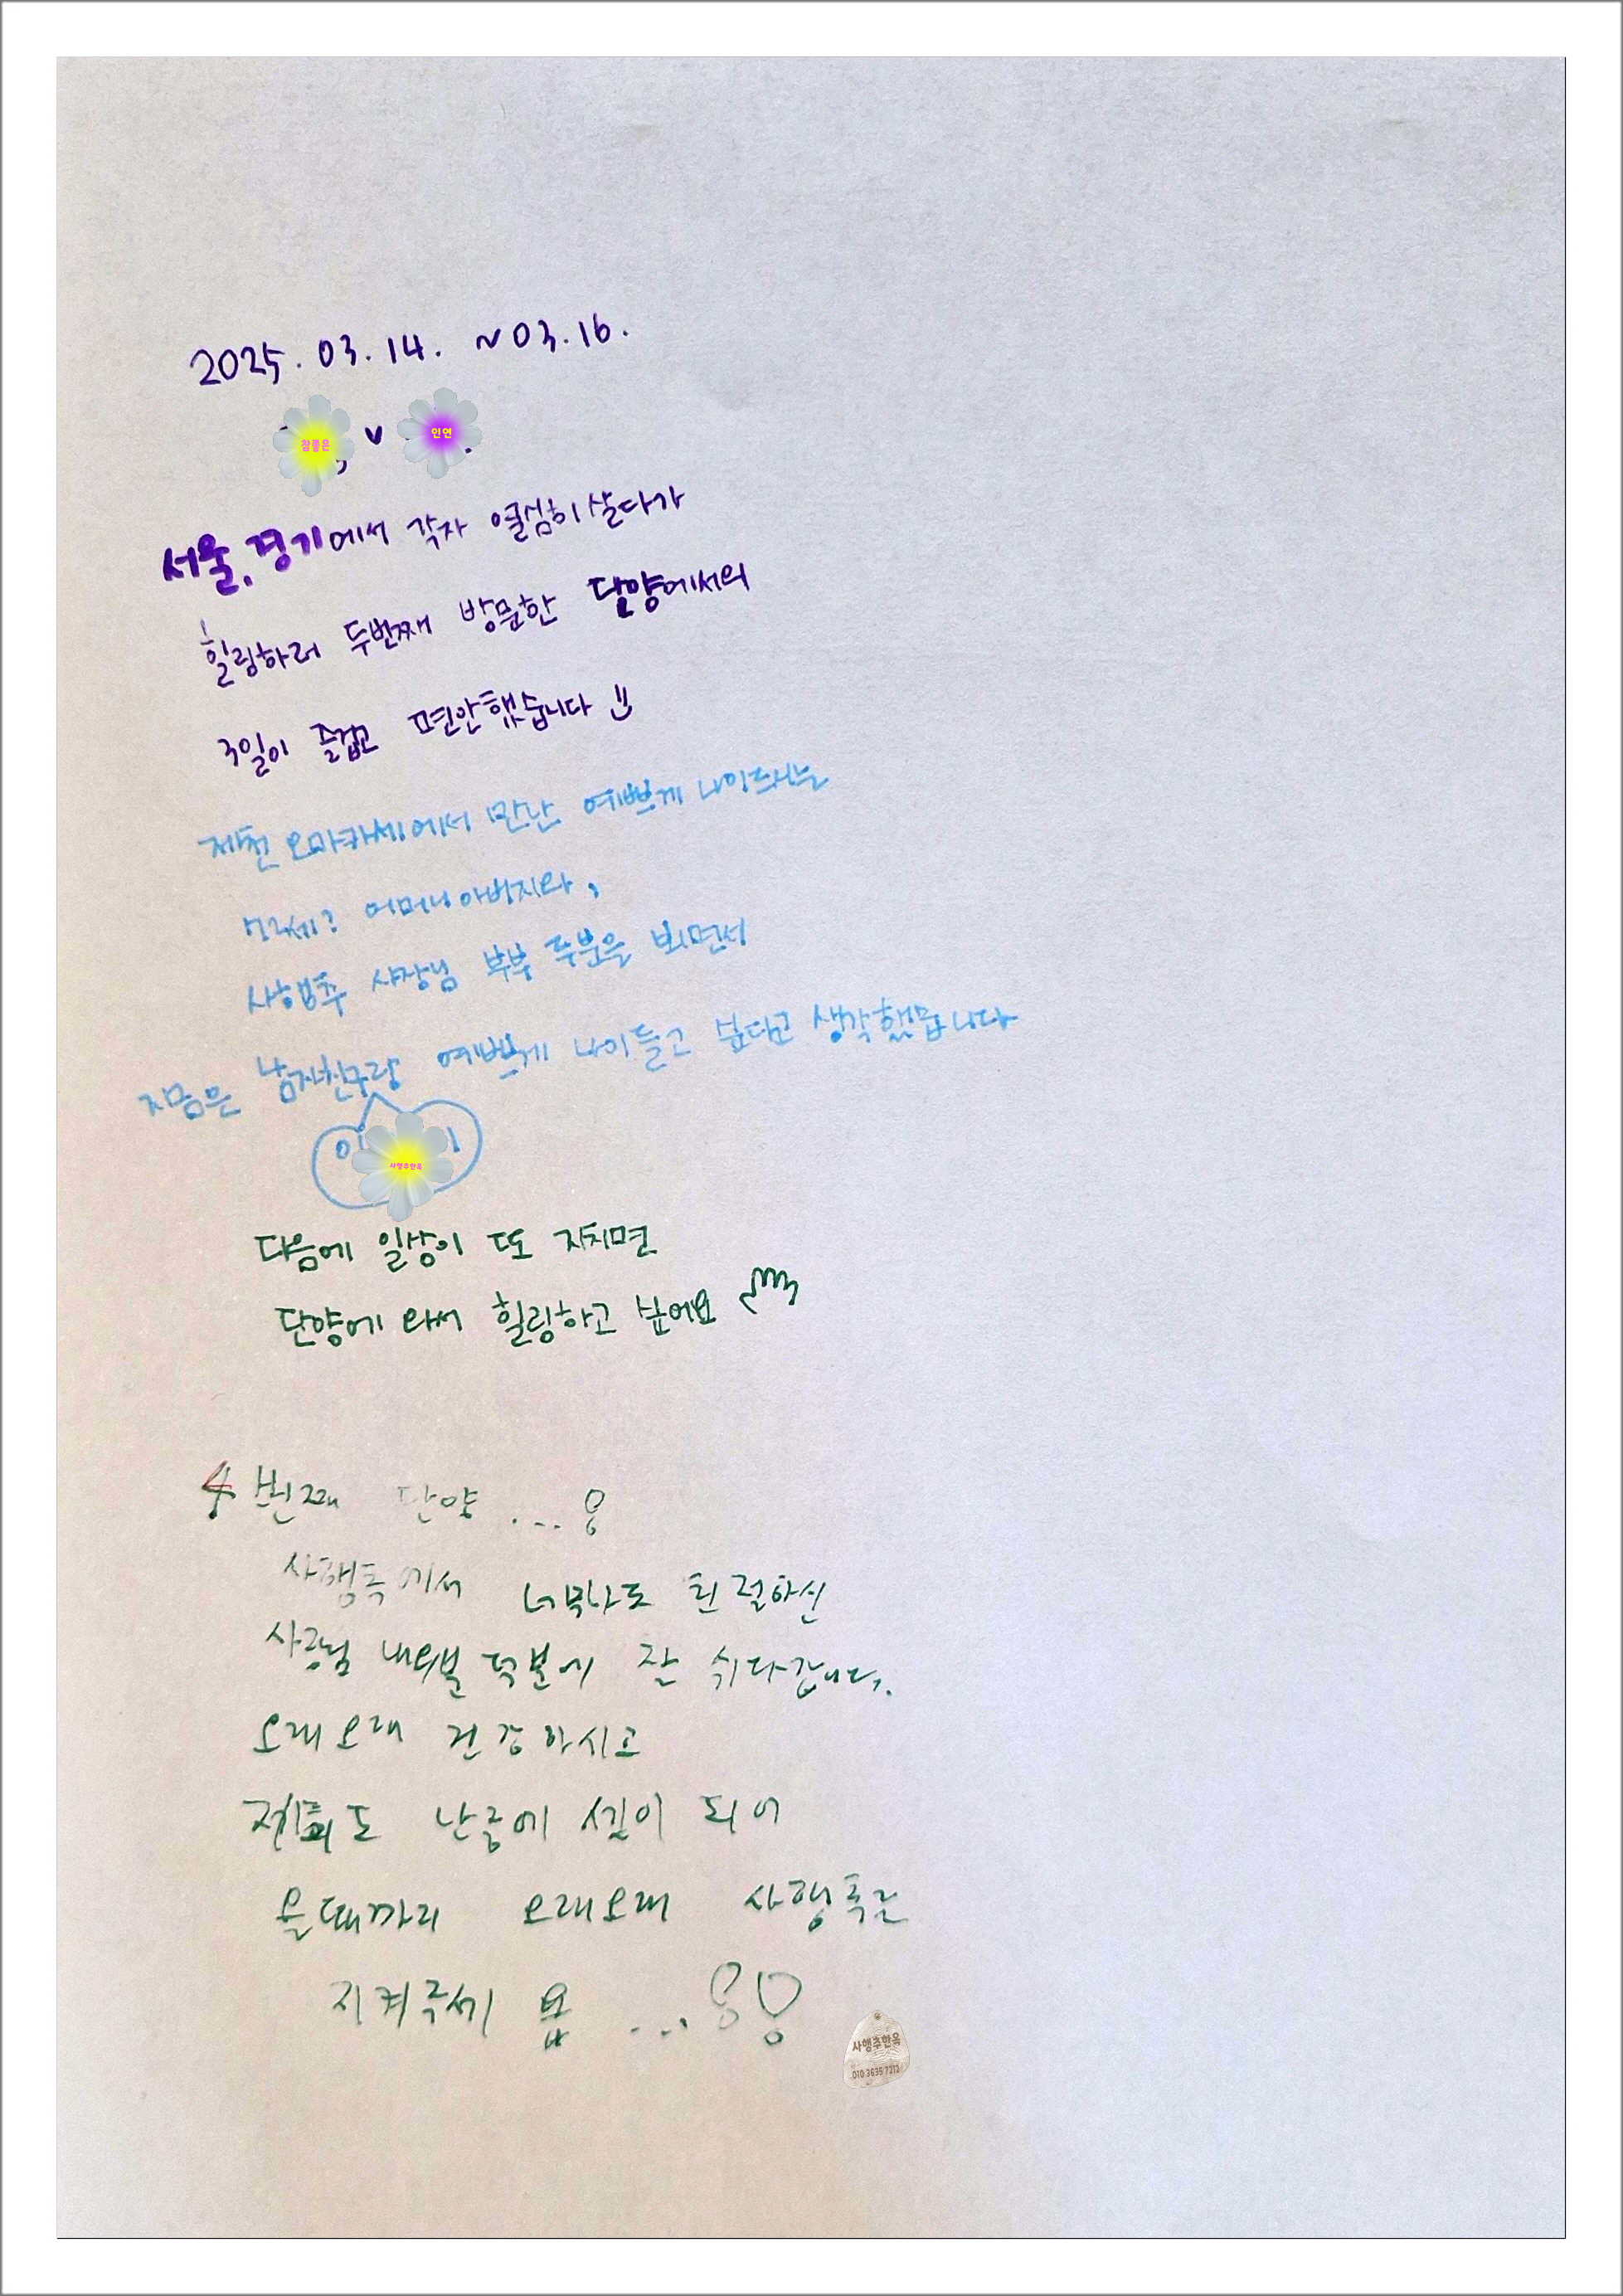 2025. 03. 14. ~ 03. 16.
참좋은 ♥ 인연
서울, 경기에서 각자 열심히 살다가
힐링하러 두번째 방문한 단양에서의
3일이 즐겁고 편안했습니다
제천 오마카세에서 만난 예쁘게 나이드시는
어머니 아버지와,
사행추 사장님 부부 두분을 뵈면서
지금은 남자친구랑 예쁘게 나이들고 싶다고 생각했답니다
사행추한옥
다음에 일상이 또 지치면
단양에 와서 힐링하고 싶어요
4번째 단양 ...
사행축에서 너무나도 친절하신
사장님 내외분 덕분에 잘 쉬다갑니다.
오래오래 건강하시고
저희도 난중에 셋이 되어
올때까지 오래오래 사행축을
지켜주세용 ...
사행추한옥
010.3635.7212